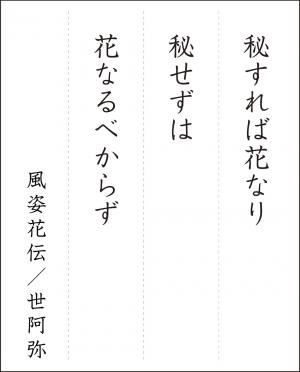 秘すれば花なり
秘せずは
花なるべからず
風姿花伝／世阿弥